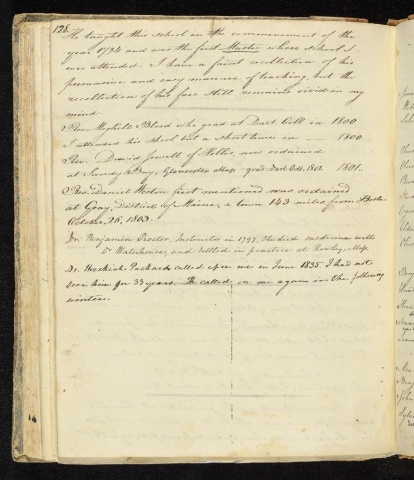 128.
He taught this school in the commencement of the
year 1794 and was the first Master whose school I
ever attended. I have a faint recollection of his
persuasive and easy manner of teaching, but the
recollection of his face still remains vivid in my
mind.
Rev. Meghill Blood who grad at Dart Coll in 1800
I attended his school but a short time in — 1800
Rev. David Jewett of Hollis, now ordained
at Sandy Bay, Gloucester Mass - grad. Dart Coll. 1801. 1801.
Rev. Daniel Weston first mentioned was ordained
at Gray, District of Maine, a town 143 miles from Boston
October 26, 1803.
Dr. Benjamin Proctor, Instructor in 1797, studied medicine with
Dr Waterhouse, and settled in practice at Rowley, Mass.
Dr. Hezekiah Packard called upon me in June 1835. I had not
seen him for 33 years. He called on me again in the following
winter.